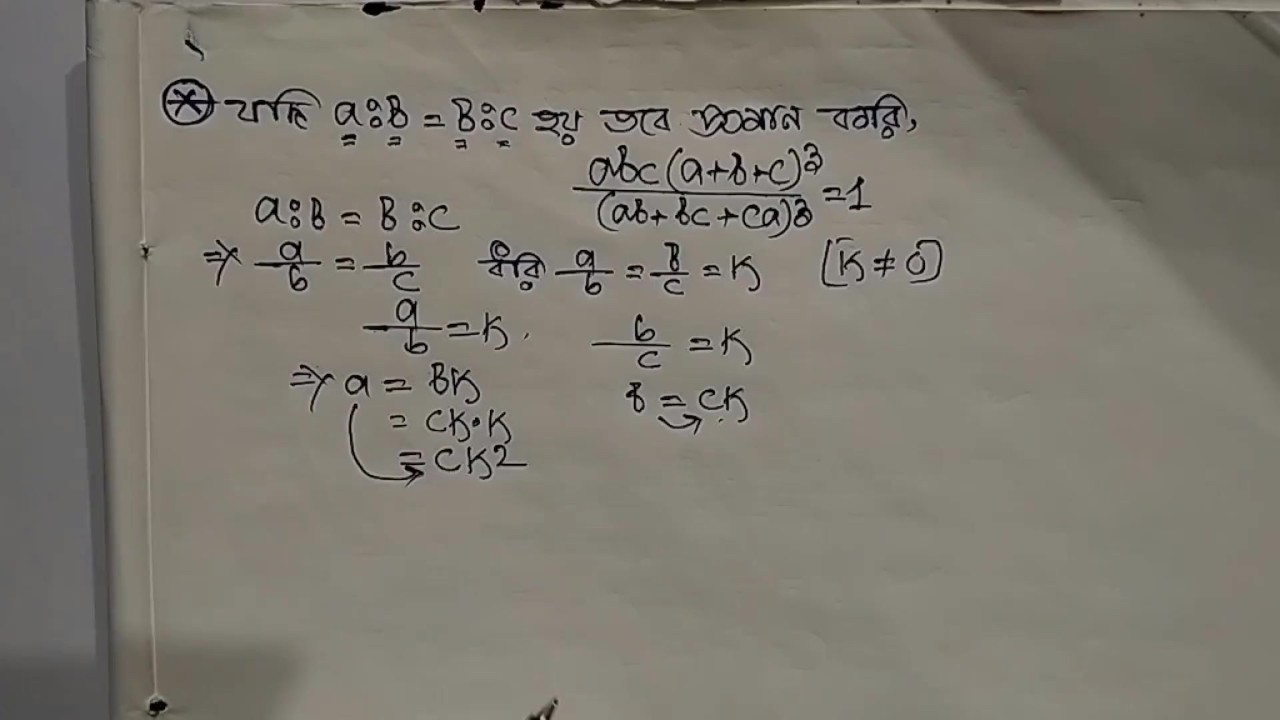 যদি a:b = b:c হয় তবে প্রমান করি,
abc(a+b+c)³ / (ab+bc+ca)³ = 1
a:b = b:c
⇒ a/b = b/c ধরি a/b = b/c = K [K ≠ 0]
a/b = K. b/c = K
⇒ a = bK b = cK
= cK·K
= cK2